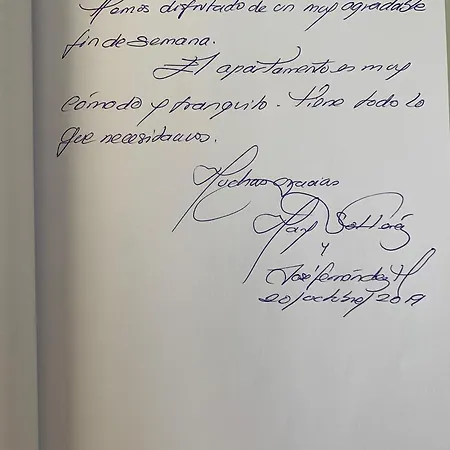 Hemos disfrutado de un muy agradable
fin de semana.
El apartamento es muy
cómodo y tranquilo. Tiene todo lo
que necesitamos.
Muchas gracias
Mary
y
José Fernández H
20/octubre/2019